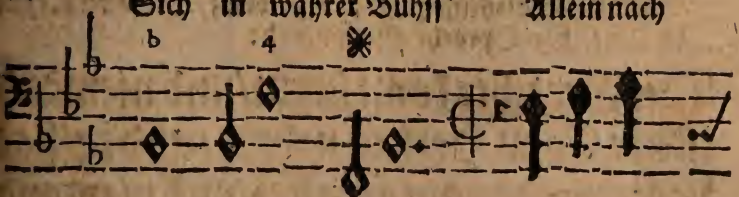 Sich in wahrer Buhss Allein nach
b 4